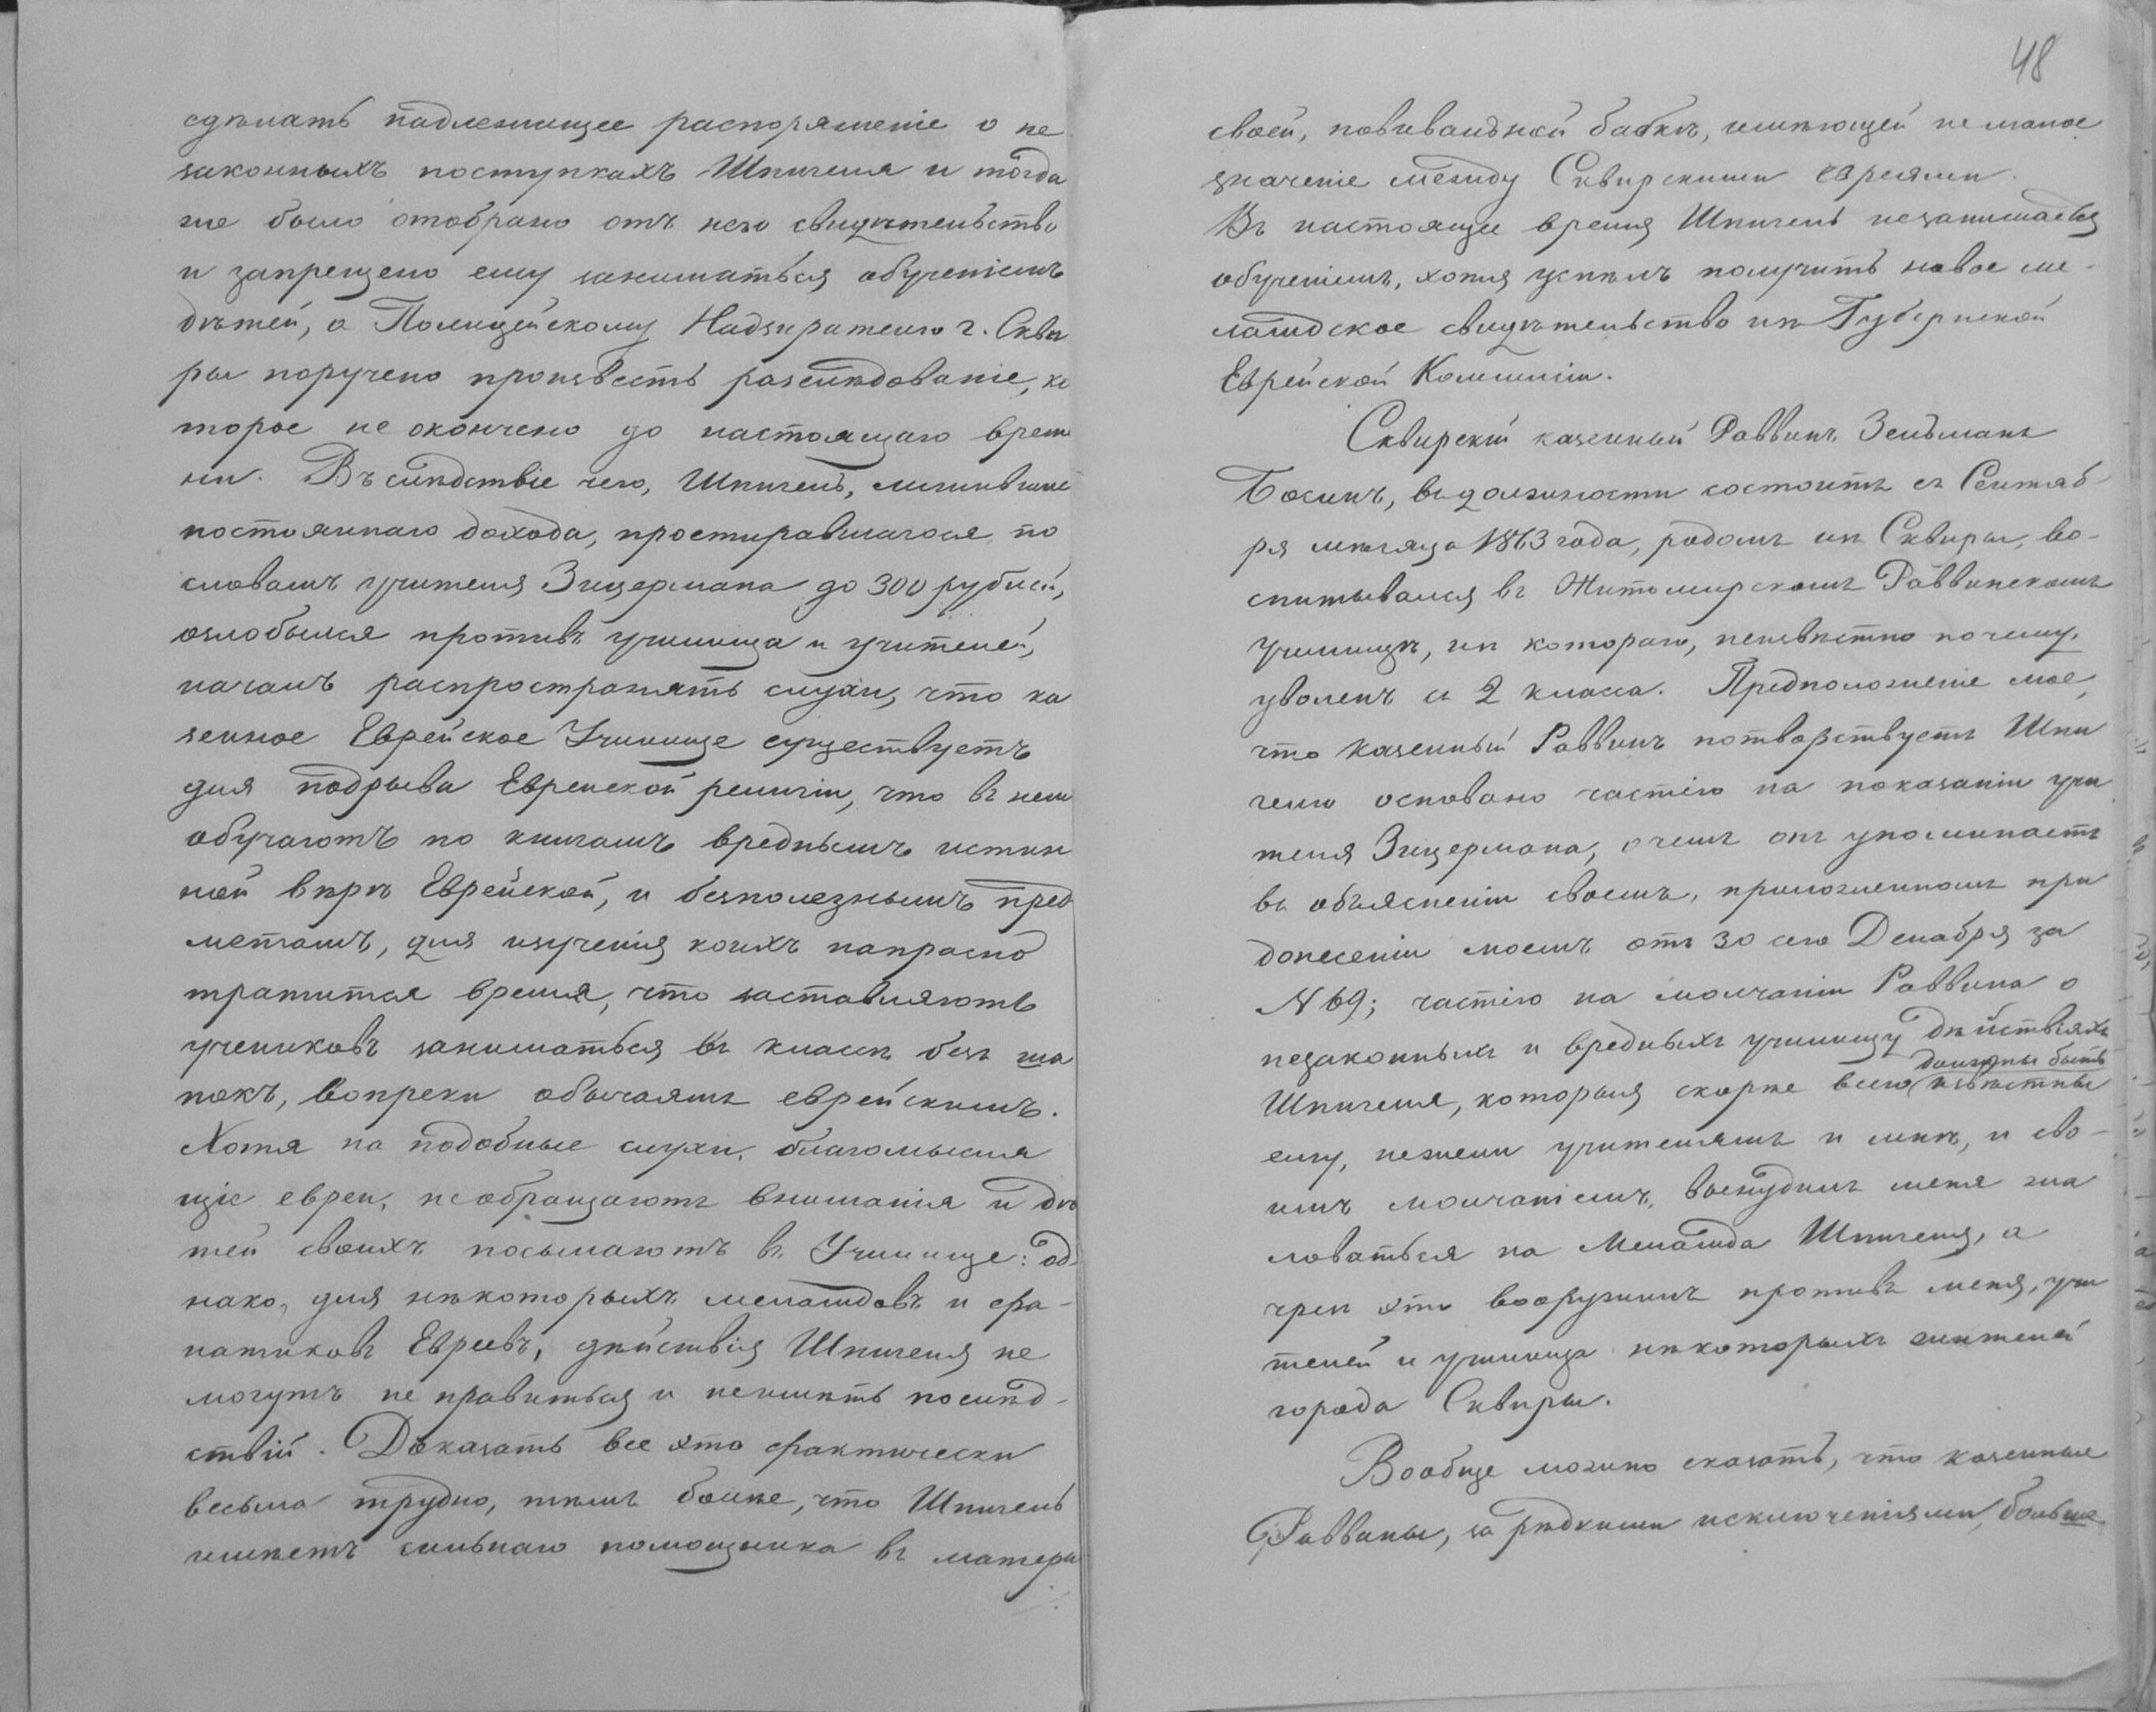 сдѣлать надлежащее распоряженіе о не
законныхъ поступкахъ Шпигеля и тогда
же было отобрано отъ него свидѣтельство
и запрещено ему заниматься обученіемъ
дѣтей, а Полицейскому Надзирателю г. Скви
ры поручено произвесть разслѣдованіе, ко
торое не окончено до настоящаго време
ни. Въ слѣдствіе чего, Шпигель, лишившис
постояннаго дохода, простиравшагося, по
словамъ учителя Зицермана до 300 рублей,
озлобился противъ училища и учителей,
началъ распространять слухи, что ка
зенное Еврейское Училище существуетъ
для подрыва Еврейской религіи, что въ нем
обучаютъ по книгамъ вреднымъ истин
ной вѣрѣ Еврейской, и безполезнымъ пред
метамъ, для изученія коихъ напрасно
тратится время, что заставляютъ
учениковъ заниматься въ классѣ безъ ша
покъ, вопреки обычаямъ еврейскимъ.
Хотя на подобные слухи, благомысля
щіе евреи, не обращаютъ вниманія и дѣ
тей своихъ посылаютъ въ Училище: од
нако, для нѣкоторыхъ меламдовъ и фа-
натиковъ Евреевъ, дѣйствія Шпигеля не
могутъ не нравиться и неимѣть послѣд-
ствій. Доказать все это фактически
весьма трудно, тѣмъ болѣе, что Шпигель
имѣетъ сильнаго помощника въ матери
48
своей, повивальной бабкѣ, имѣющей не малое
значеніе между Сквирскими евреями.
Въ настоящее время Шпигель незанимается
обученіемъ, хотя успѣлъ получить новое ме-
ламдское свидѣтельство изъ Губернской
Еврейской Коммиссіи.
Сквирскій казенный Раввинъ Зельманъ
Босинъ, въ должности состоитъ съ Сентяб-
ря мѣсяца 1863 года, родомъ изъ Сквиры, во-
спитывался въ Житомирскомъ Раввинскомъ
училищѣ, изъ котораго, неизвѣстно почему,
уволенъ съ 2 класса. Предположеніе мое,
что казенный Раввинъ потворствуетъ Шпи
гелю основано частію на показаніи учи
теля Зицермана, о чемъ онъ упоминаетъ
въ объясненіи своемъ, приложенномъ при
донесеніи моемъ отъ 30 сего Декабря за
N 69; частію на молчаніи Раввина о
незаконныхъ и вредныхъ училищу дѣйствіяхъ
должны быть
Шпигеля, которыя скорѣе всего извѣстны
ему, нежели учителямъ и мнѣ, и сво-
имъ молчаніемъ, вынудилъ меня жа
ловаться на Меламда Шпигеля, а
чрезъ это вооружилъ противъ меня, учи
телей и училища нѣкоторыхъ жителей
города Сквиры.
Вообще можно сказать, что казенные
Раввины, за рѣдкими исключеніями, больше